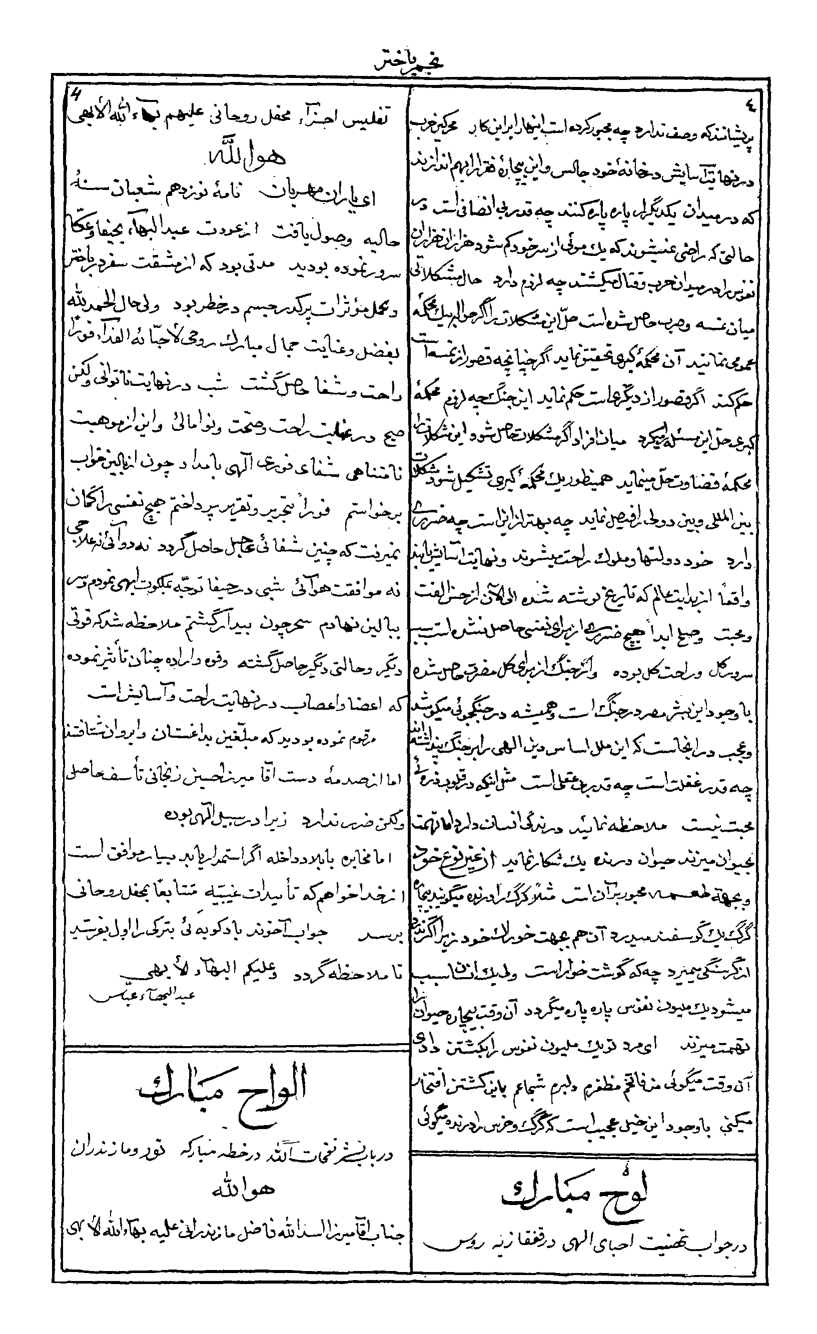 نجم باختر
٤
پریشانند که وصف ندارد چه مجبور کرده است اینها را بر این کار محرکین حرب
در نهایت آسایش در خانهٔ خود جالس و این بیچاره فقرا را بهم اندازند
که در میدان یکدیگر را پاره پاره کنند چه قدر بی انصافی است در
حالتی که راضی نمیشوند که یک موئی از سر خود کم شود هزاران هزاران
نفوس را در میدان حرب و قتال میکشند چه لزوم دارد حال مشکلاتی
میان نمسه و صرب حاصل شده است حلّ این مشکلات را اگر حواله بیک محکمهٔ
عمومی نمائید آن محکمهٔ کبری تحقیق نماید اگر چنانچه قصور از نمسه است
حکم کند اگر قصور از دیگری است حکم نماید این جنگ چه لزوم محکمهٔ
کبری حلّ این مسئله میکرد میان افراد اگر مشکلات حاصل شود این مشکلات را
محکمهٔ قضاوت حلّ مینماید همینطور یک محکمهٔ کبری تشکیل شود مشکلات
بین المللی و بین دولی را فیصل نماید چه بهتر از این است چه ضرری
دارد خود دولتها و ملوک راحت میشوند و نهایت آسایش یابند
واقعاً از بدایت عالم که تاریخ نوشته شده الی الآن از حسّ الفت
و محبت و صلح ابداً هیچ ضرری از برای نفسی حاصل نشده است سبب
سرور کل و راحت کل بوده و از جنگ از برای کل مضرّت حاصل شده
با وجود این بشر مصر در جنگ است و همیشه در جنگجوئی میکوشد
و عجب در اینجاست که این ملل اساس دین الهی را بر جنگ پنداشته اند
چه قدر غفلت است چه قدر بی عقلی است مثل اینکه در قلوب ذرهٔ
محبت نیست ملاحظه نمائید درندگی انسان دارد اما تهمت
بحیوان میزند حیوان درنده یک شکار نماید از غیر نوع خود
و بجهة طعمه مجبور بر آن است مثلاً گرگ را درنده میگویند بیچاره
گرگ یک گوسفند میدرد آن هم بجهت خوراک خود زیرا اگر ندرد
از گرسنگی بمیرد چه که گوشت خوار است ولی یک انسان سبب
میشود یک ملیون نفوس پاره پاره میگردد آن وقت بیچاره حیوان را
تهمت میزند ای مرد تو یک ملیون نفوس را بکشتن دادی
آن وقت میگوئی من فاتحم مظفرم دلیرم شجاعم باین کشتن افتخار
میکنی با وجود این خیلی عجیب است که گرگ و خرس را درنده میگوئی
لوح مبارک
در جواب تهنیت احبای الهی در قفقازیه روس
4
تفلیس اجزآء محفل روحانی علیهم بهآء الله الأبهی
هو الله
ای یاران مهربان نامهٔ نوزدهم شعبان سنهٔ
حالیه وصول یافت از عودت عبد البهآء بحیفا و عکا
سرور نموده بودید مدتی بود که از مشقت سفر در باختر
و تحمل مؤثرات پرکدر جسم در خطر بود ولی حال الحمد لله
بفضل و عنایت جمال مبارک روحی لأحبّائه الفدآء فوراً
راحت و شفا حاصل گشت شب در نهایت ناتوانی ولکن
صبح در غایت راحت و صحت و توانائی و این از موهبت
نامتناهی شفای فوری الهی بامداد چون از بالین خواب
برخواستم فوراً بتحریر و تقریر پرداختم هیچ نفسی را گمان
نمیرفت که چنین شفائی عاجل حاصل گردد نه دوائی نه علاجی
نه موافقت هوائی شبی در حیفا توجّه بملکوت ابهی نمودم و سر
ببالین نهادم سحر چون بیدار گشتم ملاحظه شد که قوتی
دیگر و حالتی دیگر حاصل گشته وقوه و اراده چنان تأثیر نموده
که اعضا و اعصاب در نهایت راحت و آسایش است
مرقوم نموده بودید که مبلّغین بداغستان و ایروان شتافتند
اما از صدمهٔ دست آقا میرزا حسین زنجانی تأسف حاصل
ولکن ضرر ندارد زیرا در سبیل الهی بوده
اما مخابره با بلاد داخله اگر استمرار یابد بسیار موافق است
از خدا خواهم که تأییدات غیبیّه متتابعاً بمحفل روحانی
برسد جواب آخوند بادکوبه ئی بترکی را اول بفرستید
تا ملاحظه گردد و علیکم البهآء الأبهی
عبد البهآء عباس
الواح مبارک
در باب نشر نفحات الله در خطه مبارکه نور و مازندران
هو الله
جناب آقا میرزا اسد الله فاضل مازندرانی علیه بهآء الله الأبهی